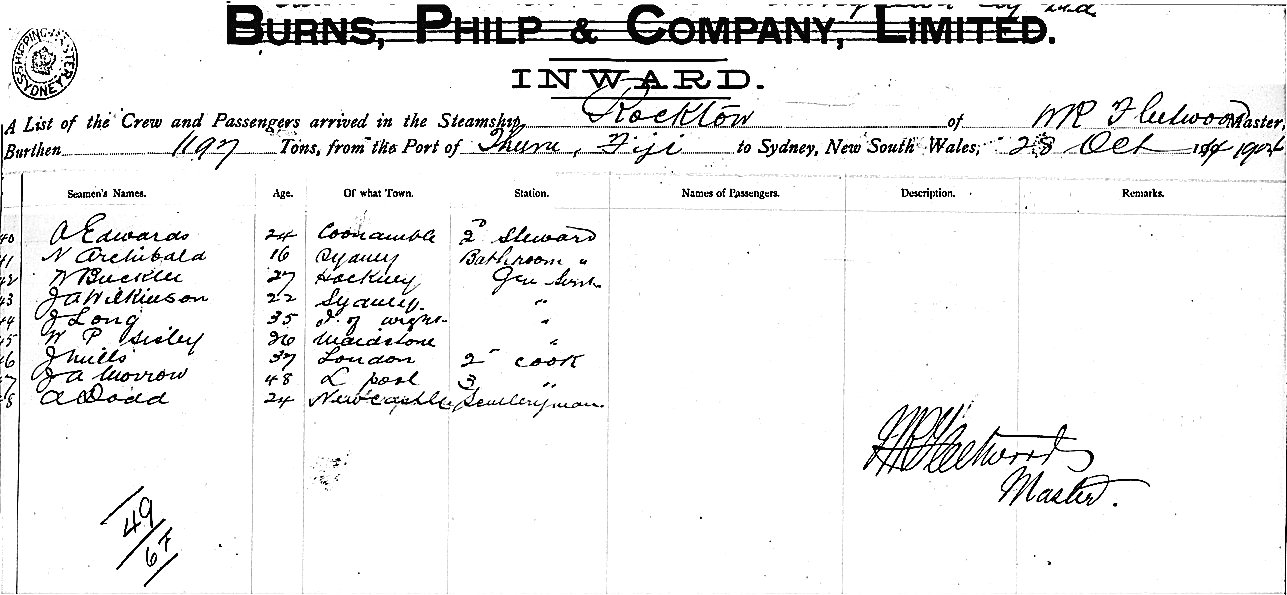 BURNS, PHILP & COMPANY, LIMITED.
SHIPPING MASTER SYDNEY
INWARD.
A List of the Crew and Passengers arrived in the Steamship Rockton of WR Fleetwood Master,
Burthen 1197 Tons, from the Port of Fiji to Sydney, New South Wales, 28 Oct
Seamen's Names. Age. Of what Town. Station. Names of Passengers. Description. Remarks.
40 A Edwards 24 Coonamble 2nd Steward
41 N Archibald 16 Sydney Bathroom "
42 W Buckler 27 Hackney Gen Servt
43 J A Wilkinson 22 Sydney "
44 J Long 35 I. of wight "
45 W P Sisley 26 Maidstone "
46 J Mills 37 London 2nd cook
47 J A Morrow 48 L pool 3 "
48 A Dodd 24 Newcastle Sculleryman
WR Fleetwood
Master.
49
67